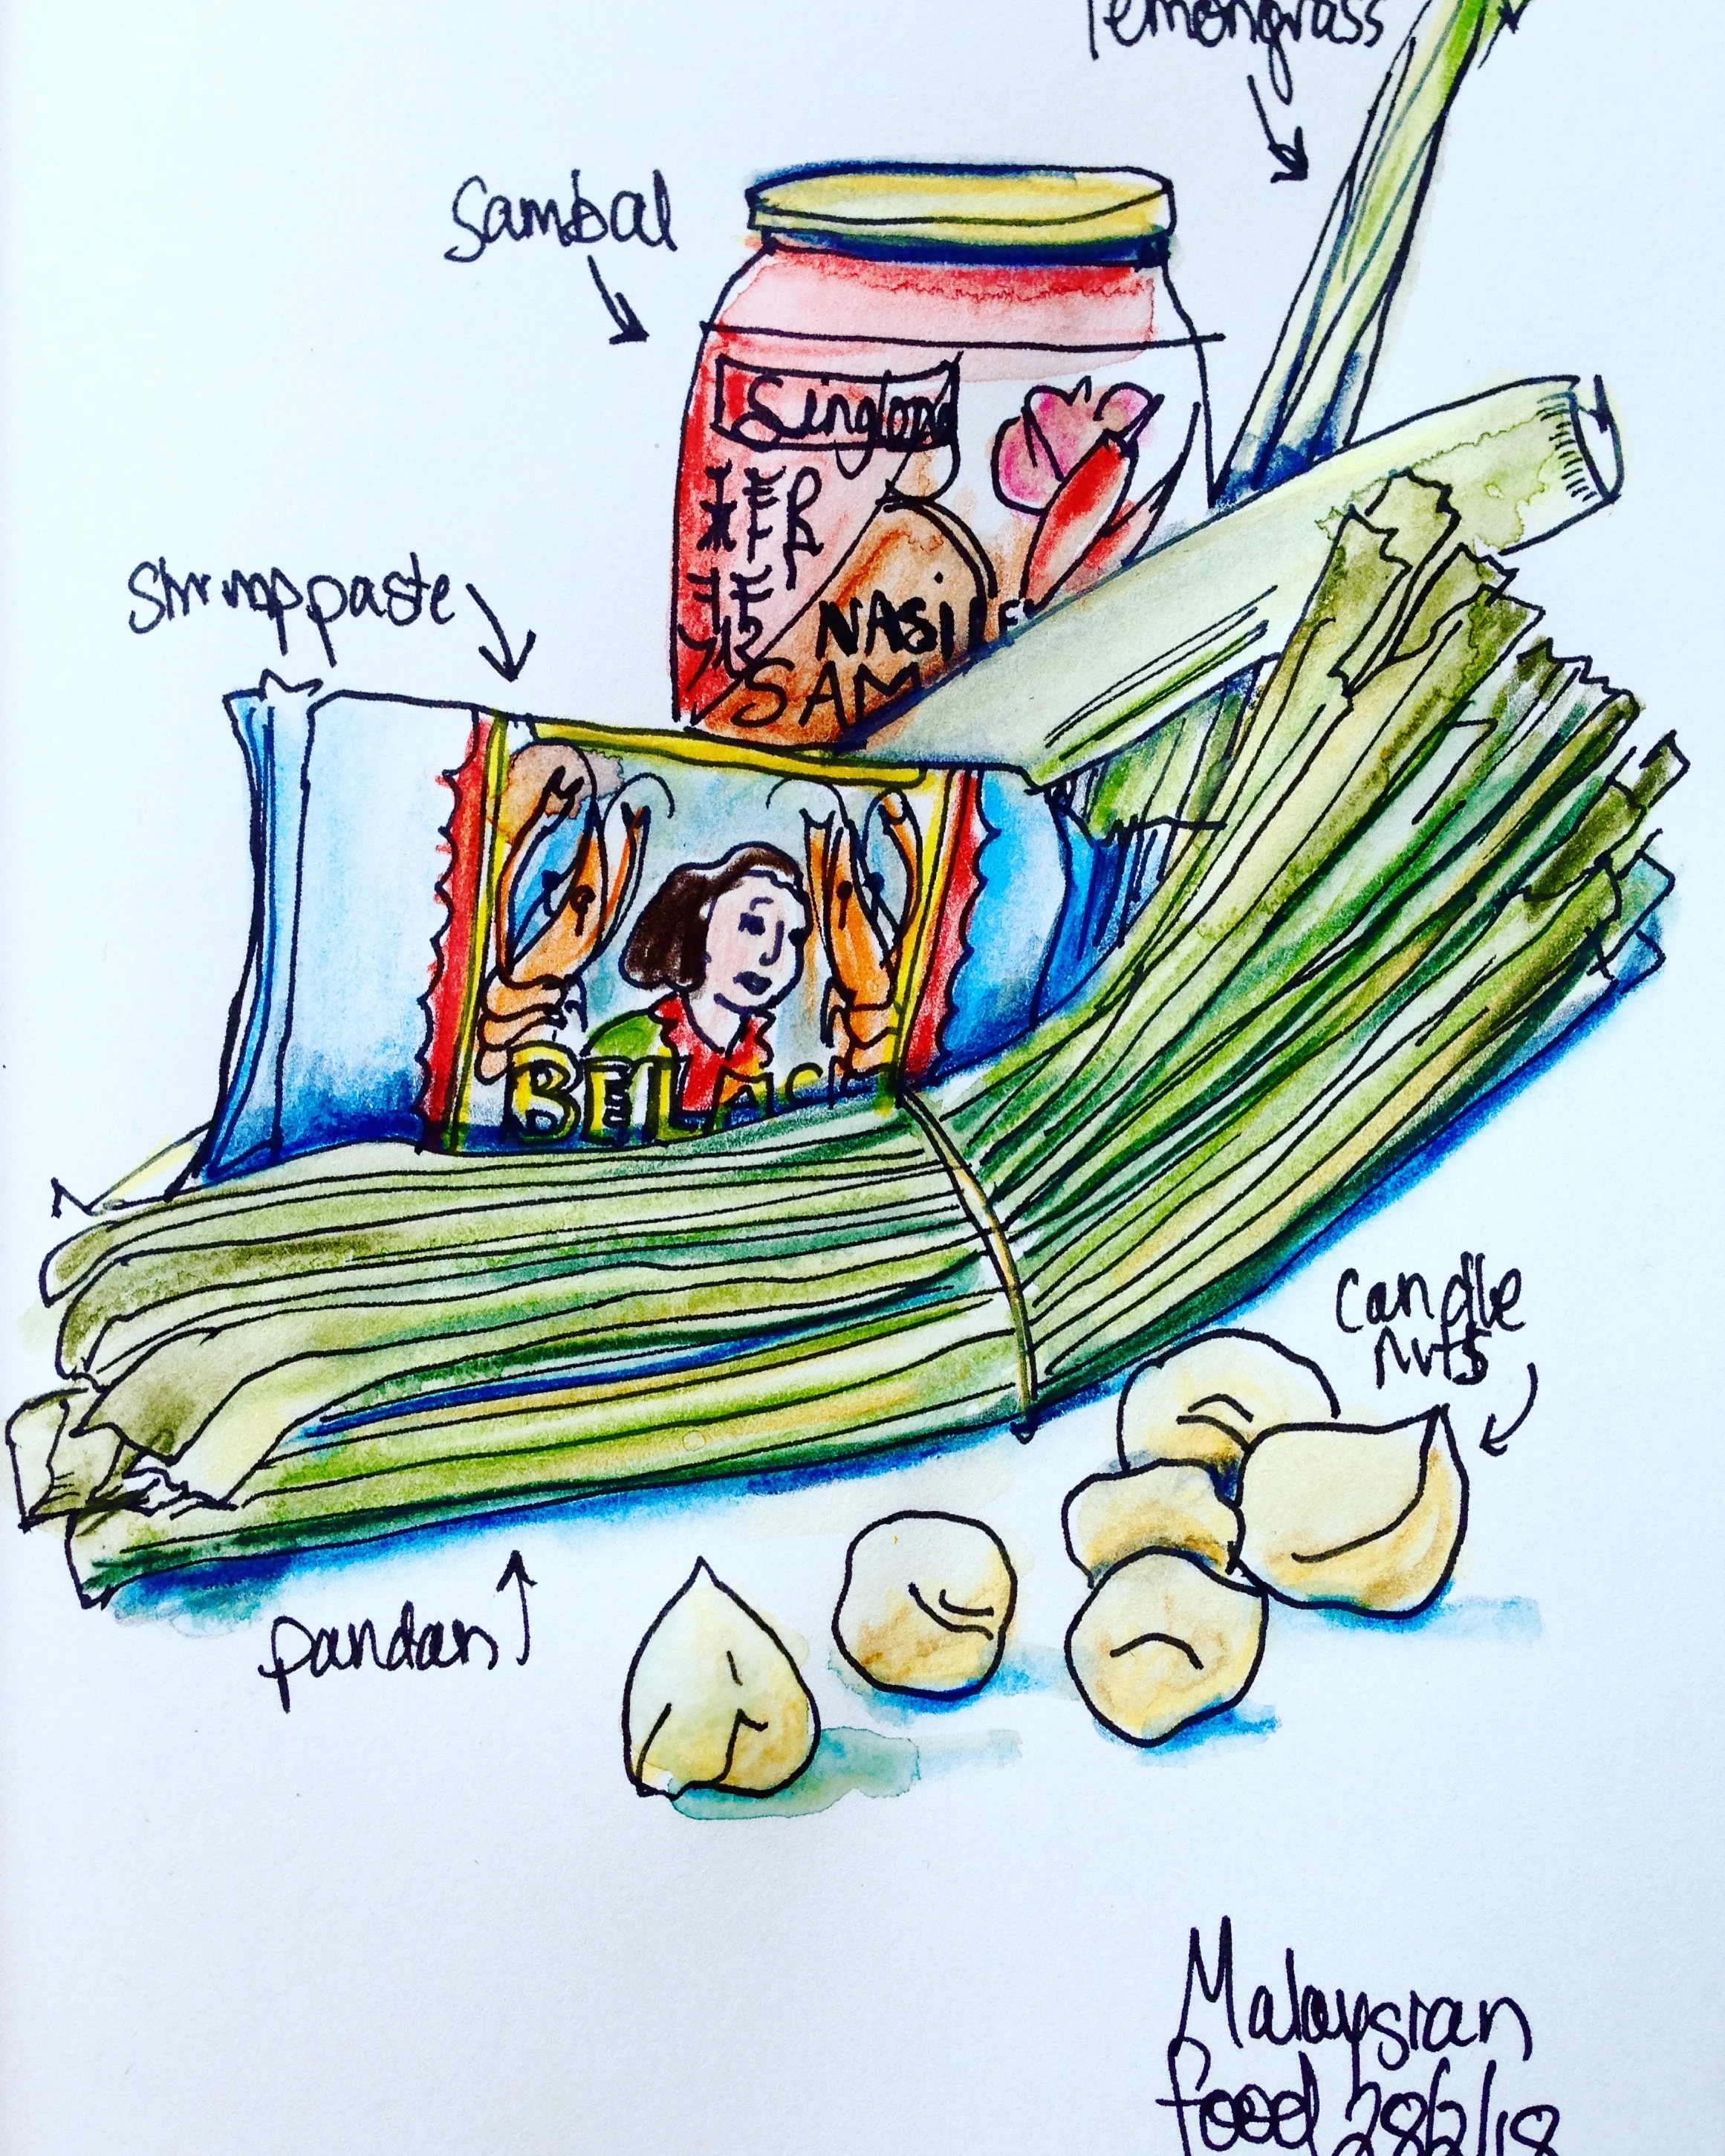 lemongrass
sambal
NASI LE
SAM
shrimp paste
BELAC
candle
nuts
pandan
Malaysian
food 28/2/18